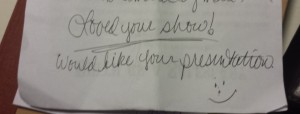 Loved your show!
Would like your presentation